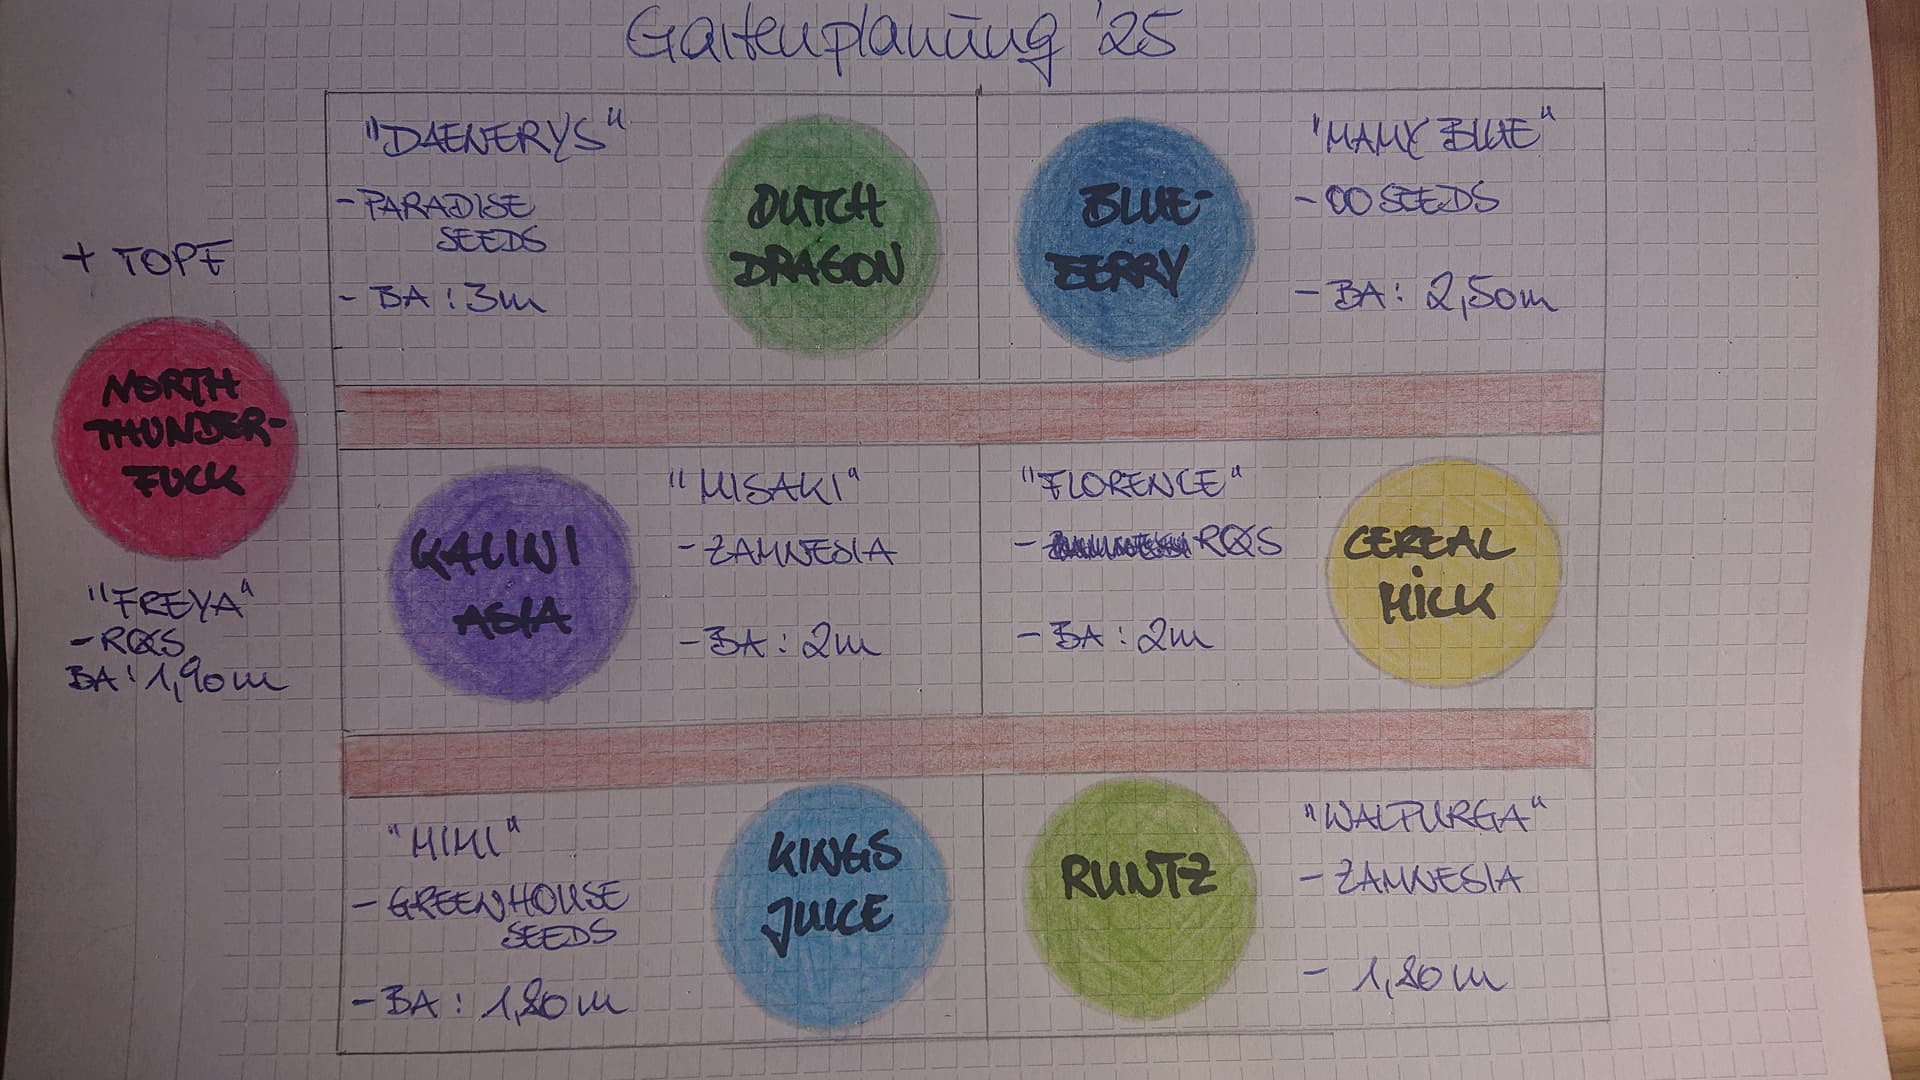 Gartenplanung '25
"DAENERYS"
- PARADISE
SEEDS
- BA : 3m
DUTCH
DRAGON
BLUE-
BERRY
"MAMY BLUE"
- 00 SEEDS
- BA : 2,50m
+ TOPF
NORTH
THUNDER-
FUCK
"FREYA"
- RQS
BA : 1,90m
KALINI
ASIA
"MISAKI"
- ZAMNESIA
- BA : 2m
"FLORENCE"
- RQS
- BA : 2m
CEREAL
MILK
"MIMI"
- GREENHOUSE
SEEDS
- BA : 1,80m
KINGS
JUICE
RUNTZ
"WALPURGA"
- ZAMNESIA
- 1,80m